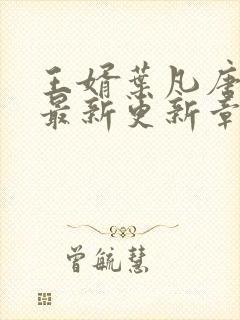 王婿叶凡唐
最新更新章
曾毓慧